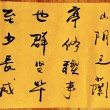 山陰之蘭
亭脩禊事
也群賢畢
至少長咸